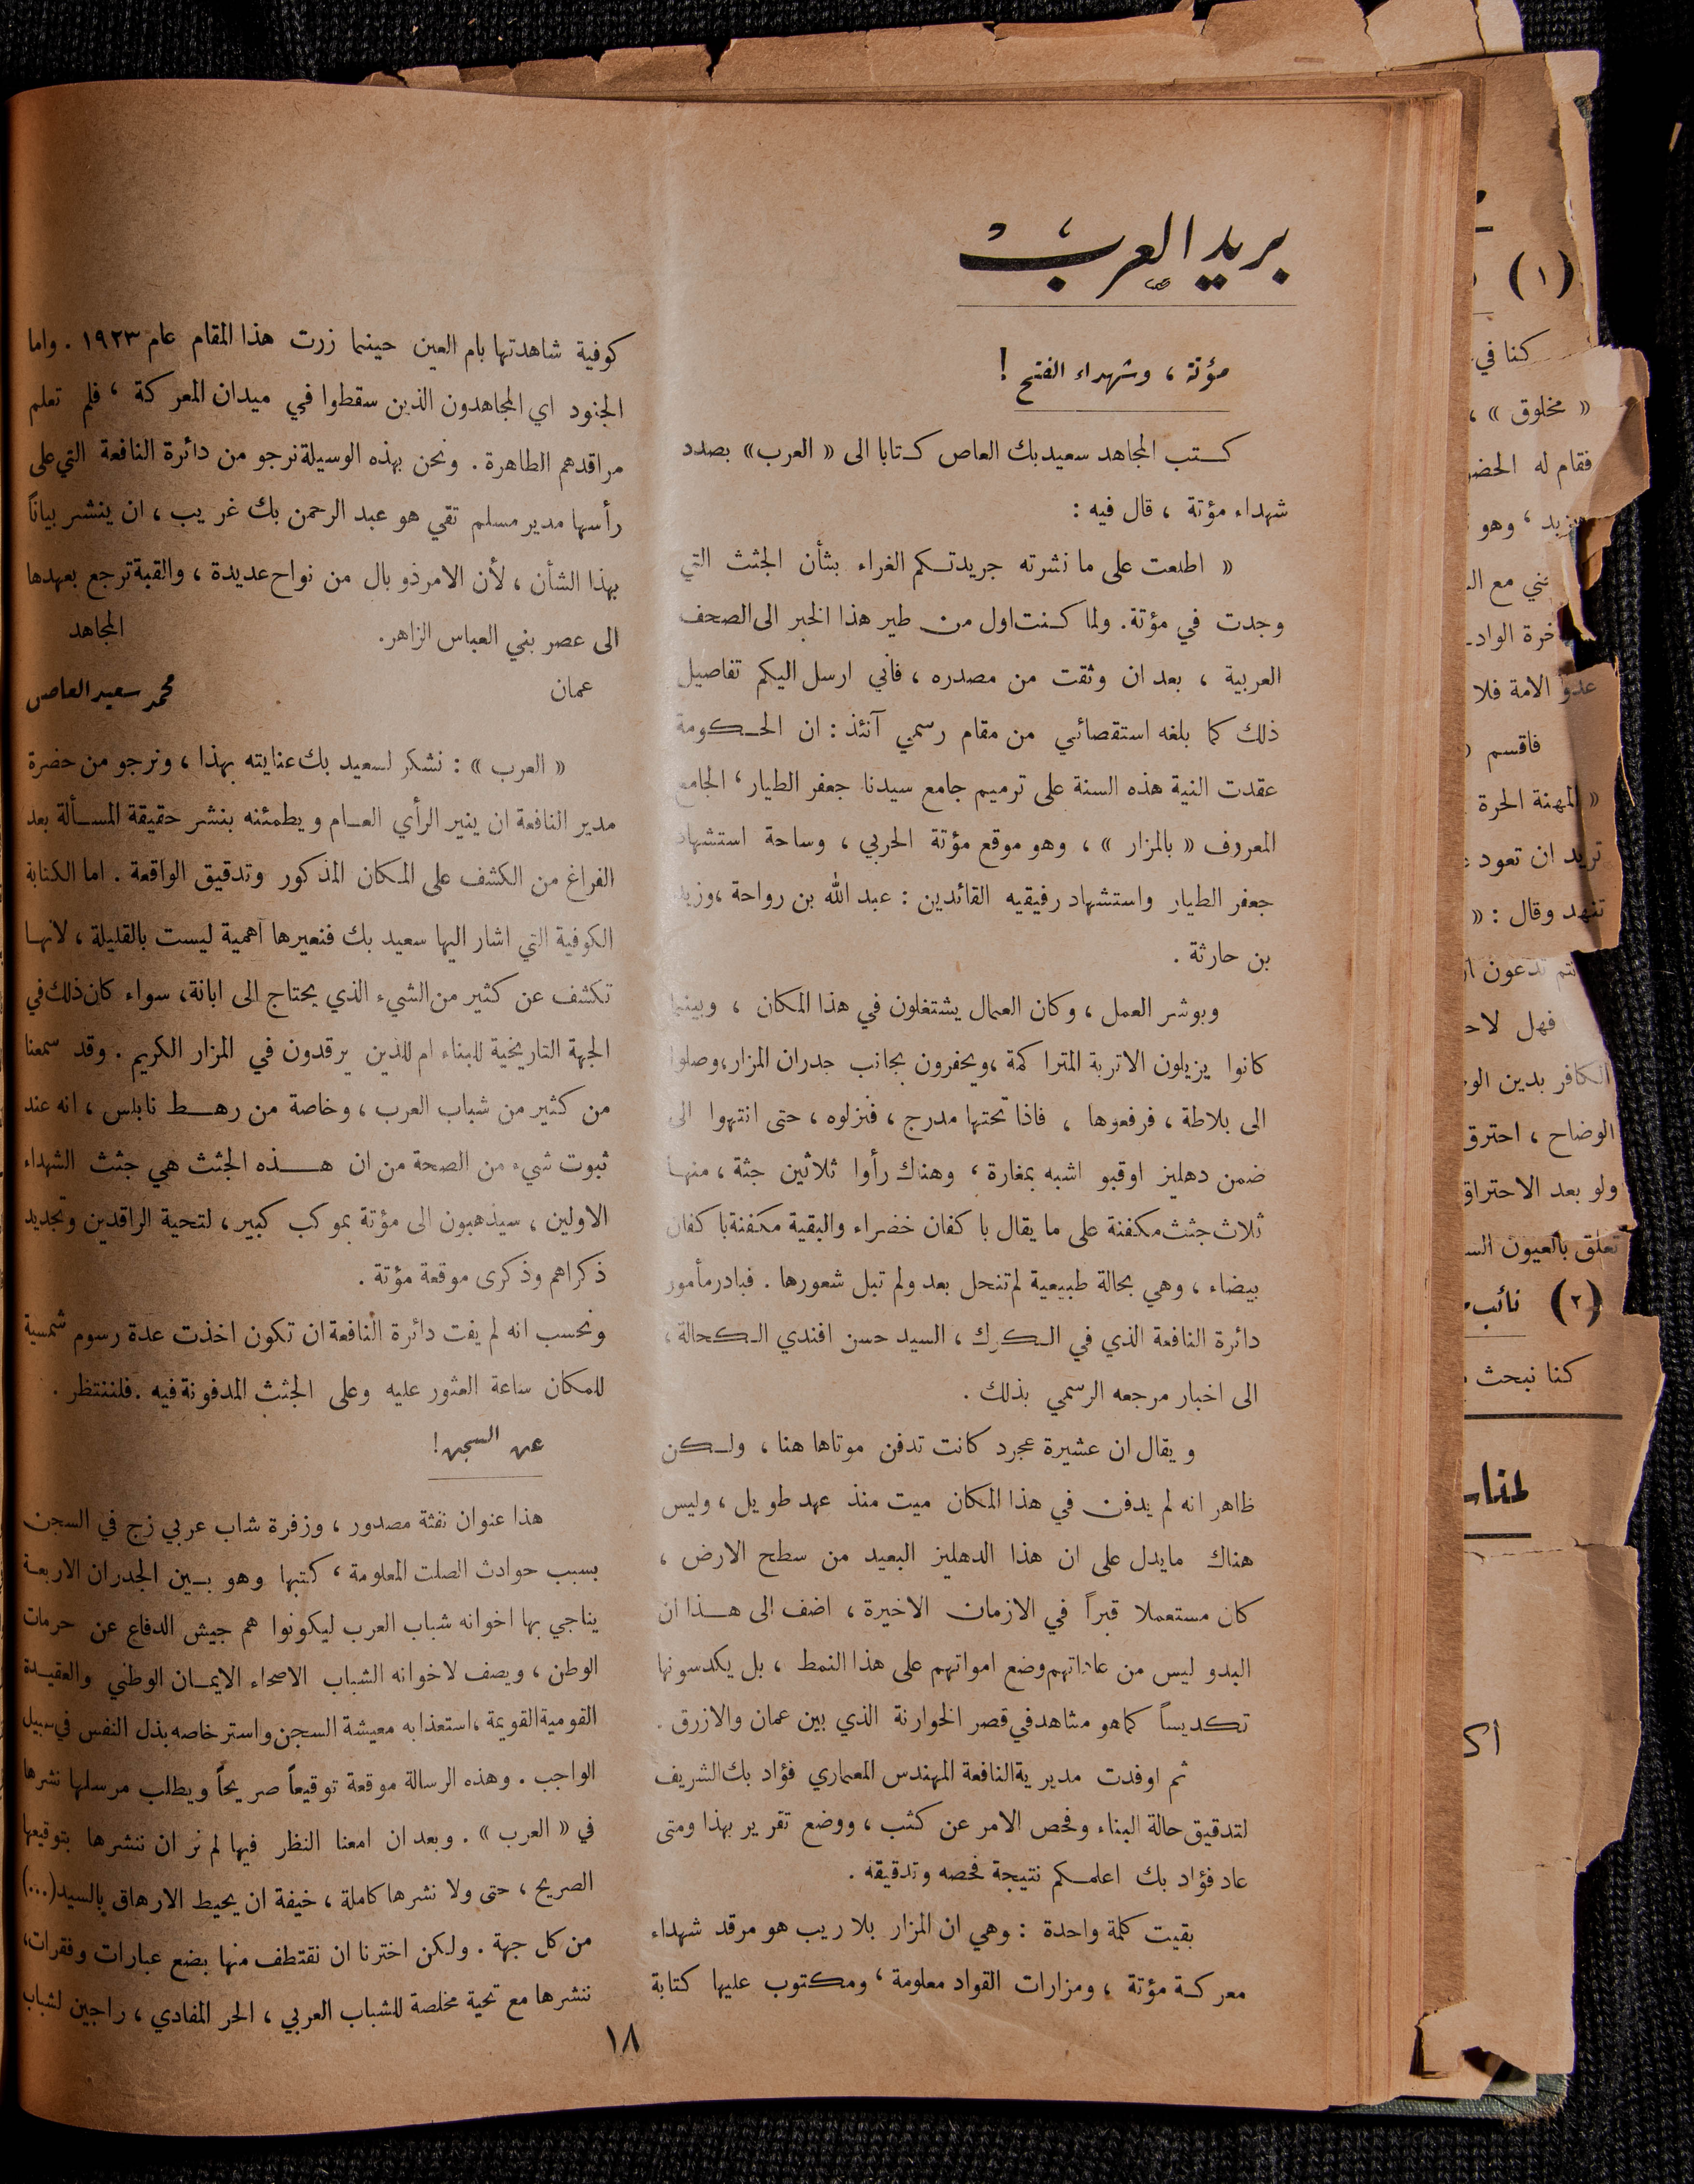 بريد العرب
مؤتة ، وشهداء الفتح !
كتب المجاهد سعيد بك العاص كتابا الى « العرب » بصدد
شهداء مؤتة ، قال فيه :
« اطلعت على ما نشرته جريدتكم الغراء بشأن الجثث التي
وجدت في مؤتة. ولما كنت اول من طير هذا الخبر الى الصحف
العربية ، بعد ان وثقت من مصدره ، فأني ارسل اليكم تفاصيل
ذلك كما بلغه استقصائي من مقام رسمي آنئذ : ان الحكومة
عقدت النية هذه السنة على ترميم جامع سيدنا جعفر الطيار ، الجامع
المعروف « بالمزار » ، وهو موقع مؤتة الحربي ، وساحة استشهاد
جعفر الطيار واستشهاد رفيقيه القائدين : عبد الله بن رواحة ، وزيد
بن حارثة .
وبوشر العمل ، وكان العمال يشتغلون في هذا المكان ، وبينما
كانوا يزيلون الاتربة المتراكمة ، ويحفرون بجانب جدران المزار ، وصلوا
الى بلاطة ، فرفعوها ، فاذا تحتها مدرج ، فنزلوه ، حتى انتهوا الى
ضمن دهليز اوقبو اشبه بمغارة ، وهناك رأوا ثلاثين جثة ، منها
ثلاث جثث مكفنة على ما يقال باكفان خضراء والبقية مكفنة باكفان
بيضاء ، وهي بحالة طبيعية لم تنحل بعد ولم تبل شعورها . فبادر مأمور
دائرة النافعة الذي في الكرك ، السيد حسن افندي الكحالة ،
الى اخبار مرجعه الرسمي بذلك .
ويقال ان عشيرة عجرد كانت تدفن موتاها هنا ، ولكن
ظاهر انه لم يدفن في هذا المكان ميت منذ عهد طويل ، وليس
هناك مايدل على ان هذا الدهليز البعيد من سطح الارض ،
كان مستعملا قبراً في الازمان الاخيرة ، اضف الى هذا ان
البدو ليس من عاداتهم وضع امواتهم على هذا النمط ، بل يكدسونها
تكديساً كما هو مشاهد في قصر الخوارنة الذي بين عمان والازرق .
ثم اوفدت مديرية النافعة المهندس المعماري فؤاد بك الشريف
لتدقيق حالة البناء وفحص الامر عن كثب ، ووضع تقرير بهذا ومتى
عاد فؤاد بك اعلمكم نتيجة فحصه وتدقيقه .
بقيت كلمة واحدة : وهي ان المزار بلا ريب هو مرقد شهداء
معركة مؤتة ، ومزارات القواد معلومة ، ومكتوب عليها كتابة
كوفية شاهدتها بام العين حينما زرت هذا المقام عام ١٩٢٣ . واما
الجنود اي المجاهدون الذين سقطوا في ميدان المعركة ، فلم تعلم
مراقدهم الطاهرة . ونحن بهذه الوسيلة نرجو من دائرة النافعة التي على
رأسها مدير مسلم تقي هو عبد الرحمن بك غريب ، ان ينشر بياناً
بهذا الشأن ، لأن الامر ذو بال من نواح عديدة ، والقبة ترجع بعهدها
الى عصر بني العباس الزاهر. المجاهد
عمان محمد سعيد العاص
« العرب » : نشكر لسعيد بك عنايته بهذا ، ونرجو من حضرة
مدير النافعة ان ينير الرأي العام ويطمئنه بنشر حقيقة المسألة بعد
الفراغ من الكشف على المكان المذكور وتدقيق الواقعة . اما الكتابة
الكوفية التي اشار اليها سعيد بك فنعيرها أهمية ليست بالقليلة ، لانها
تكشف عن كثير من الشيء الذي يحتاج الى ابانة ، سواء كان ذلك في
الجهة التاريخية للبناء ام للذين يرقدون في المزار الكريم . وقد سمعنا
من كثير من شباب العرب ، وخاصة من رهط نابلس ، انه عند
ثبوت شيء من الصحة من ان هذه الجثث هي جثث الشهداء
الاولين ، سيذهبون الى مؤتة بموكب كبير ، لتحية الراقدين وتجديد
ذكراهم وذكرى موقعة مؤتة .
ونحسب انه لم يفت دائرة النافعة ان تكون اخذت عدة رسوم شمسية
للمكان ساعة العثور عليه وعلى الجثث المدفونة فيه . فلننتظر .
عن السجن !
هذا عنوان نفثة مصدور ، وزفرة شاب عربي زج في السجن
بسبب حوادث الصلت المعلومة ، كتبها وهو بين الجدران الاربعة
يناجي بها اخوانه شباب العرب ليكونوا هم جيش الدفاع عن حرمات
الوطن ، ويصف لاخوانه الشباب الاصحاء الايمان الوطني والعقيدة
القومية القويمة ، استعذابه معيشة السجن واسترخاصه بذل النفس في سبيل
الواجب . وهذه الرسالة موقعة توقيعاً صريحاً ويطلب مرسلها نشرها
في « العرب » . وبعد ان امعنا النظر فيها لم نر ان ننشرها بتوقيعها
الصريح ، حتى ولا نشرها كاملة ، خيفة ان يحيط الارهاق بالسيد (...)
من كل جهة . ولكن اخترنا ان نقتطف منها بضع عبارات وفقرات ،
ننشرها مع تحية مخلصة للشباب العربي ، الحر المفادي ، راجين لشباب
١٨
(١)
كنا في
« مخلوق » ،
فقام له
وهو
مع
عدو الامة فلا
فاقسم
« المهنة الحرة
تريد ان تعود
تنهد وقال : «
تدعون
فهل
الكافر بدين
الوضاح ، احترق
ولو بعد الاحتراق
تعلق بالعيون
(٢) نائب
كنا نبحث